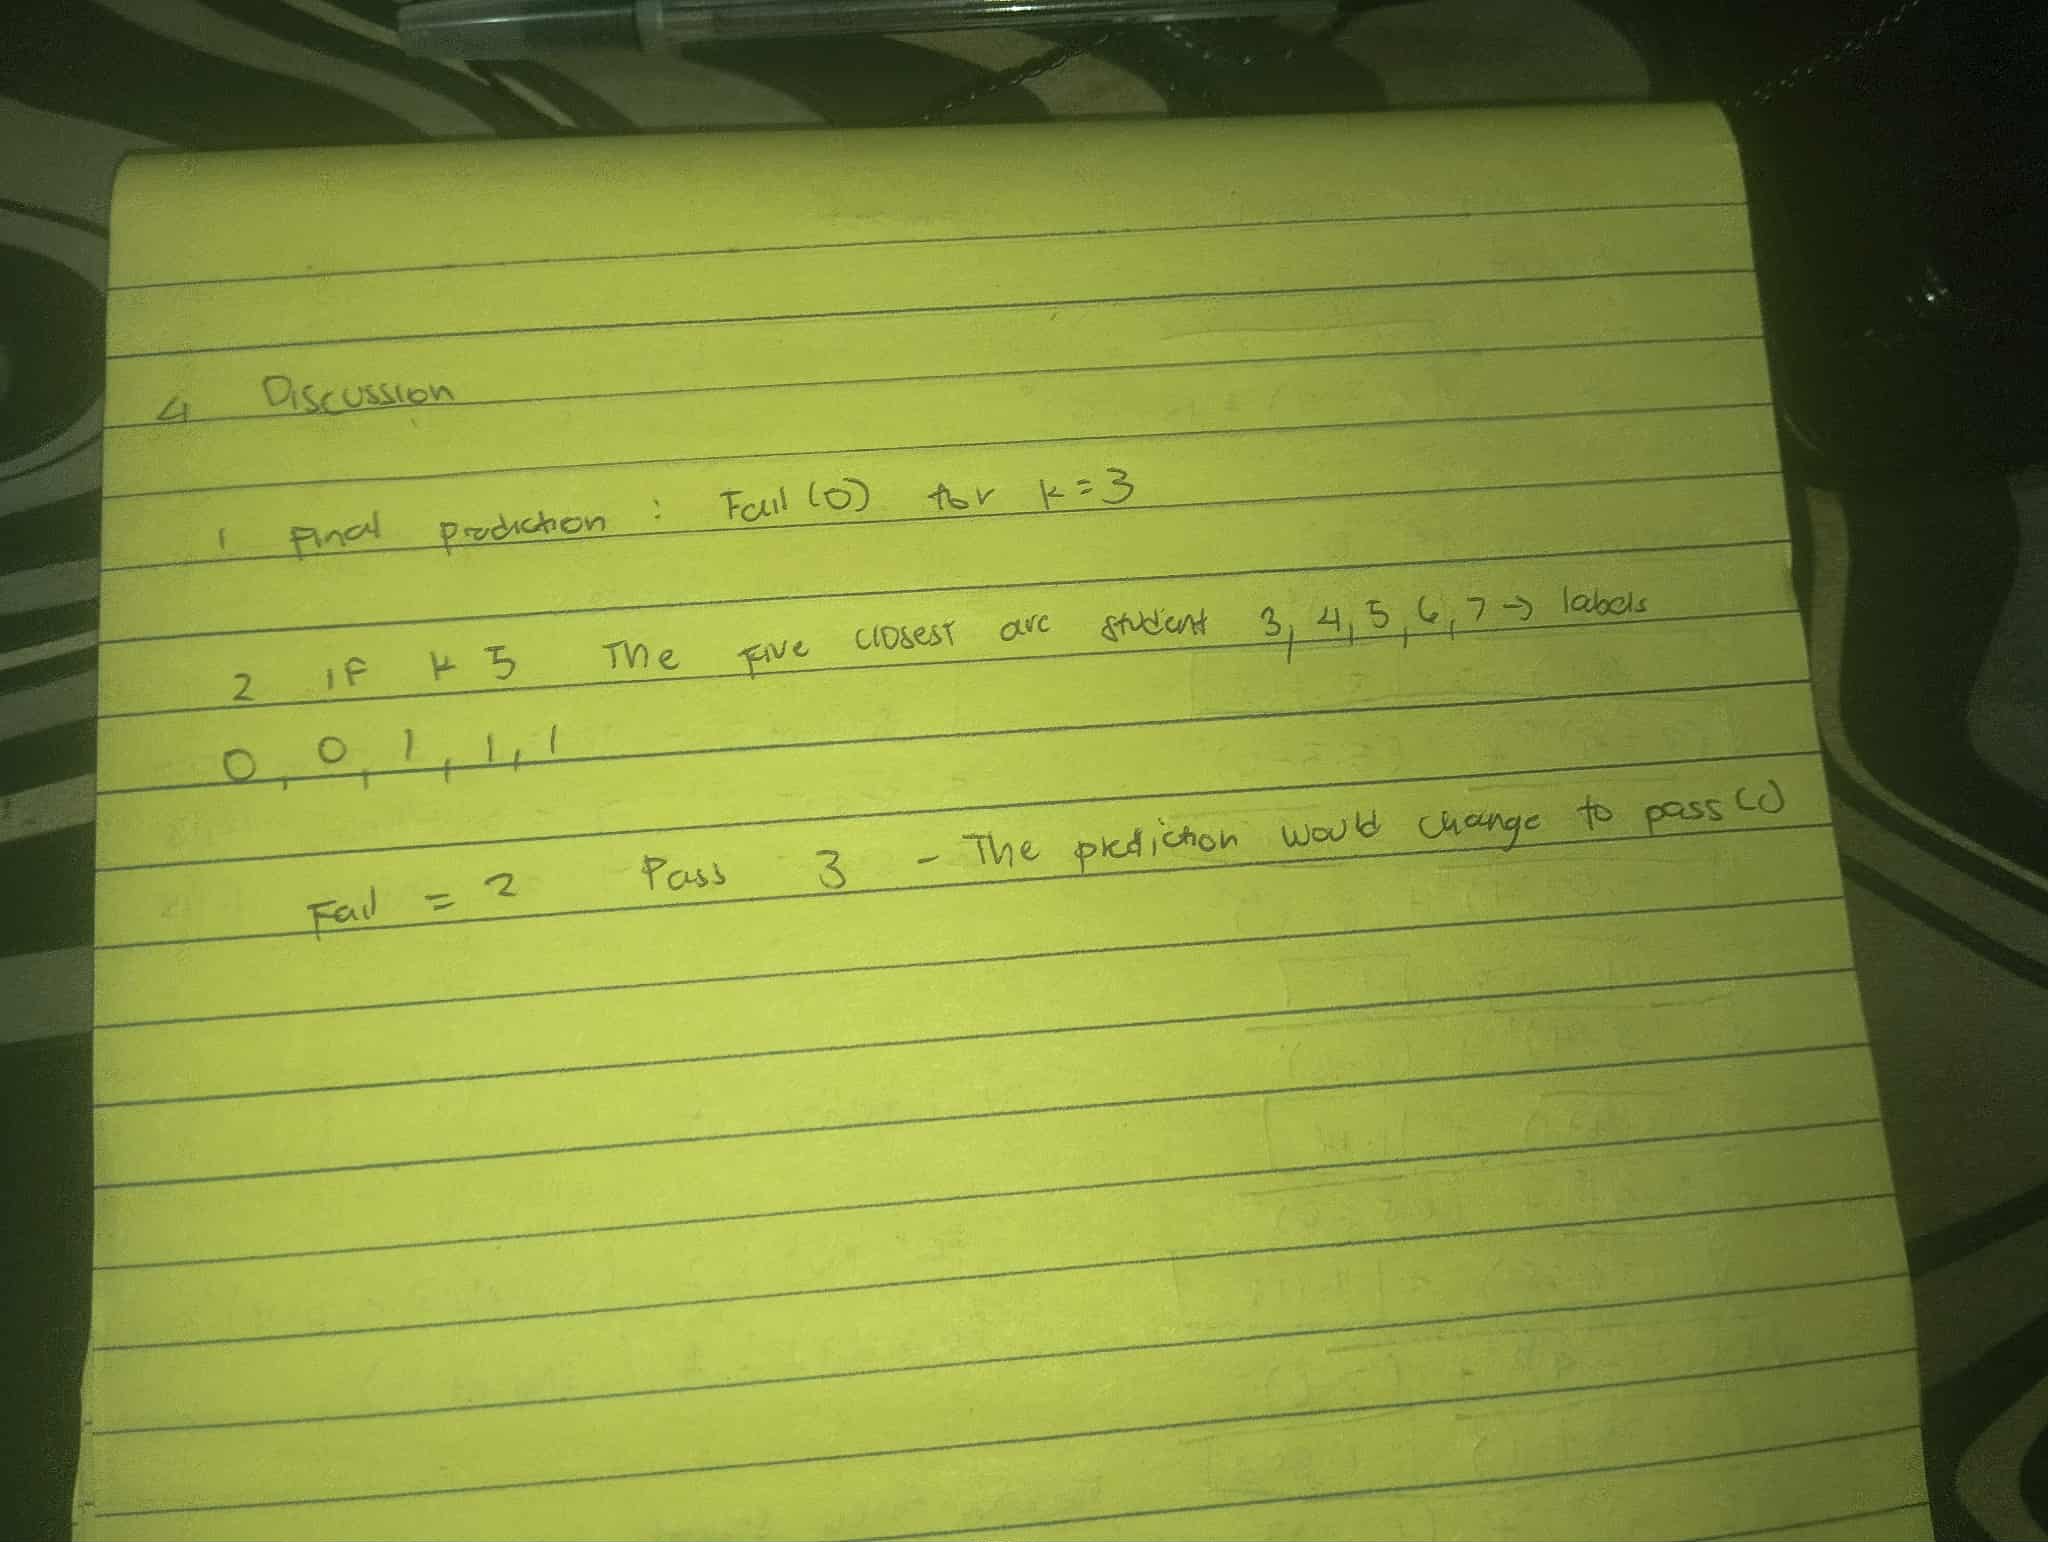 4 Discussion
1 Final prediction : Fail (0) for k = 3
2 if k 5 The Five closest are student 3, 4, 5, 6, 7 → labels
0, 0, 1, 1, 1
Fail = 2 Pass 3 - The prediction would change to pass (1)